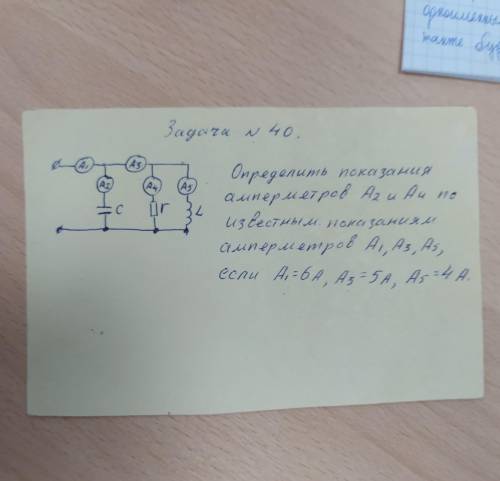 одноименны
Задача №40.
A1
A3
A2
A4
A5
C
r
L
Определить показания
амперметров A2 и A4 по
известным показаниям
амперметров A1, A3, A5,
если A1=6A, A3=5A, A5=4A.